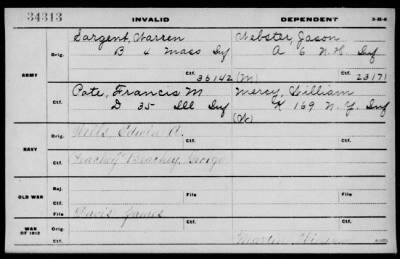 34313 INVALID DEPENDENT 3-25-6
Sargent, Warren Webster, Jason
Orig. B 4 Mass Inf A 6 N.H. Inf
ARMY Ctf. 36142 (M) Ctf. 23171
Pote, Francis M Mercy, William
Ctf. D 35 Ill Inf K 169 N.Y. Inf
Wells, Edwin A.
Orig. Ctf.
NAVY
George
Ctf. Ctf.
Rej.
OLD WAR File File
Ctf.
Davis James
WAR OF 1812 Orig. Ctf.
Ctf. Ctf.